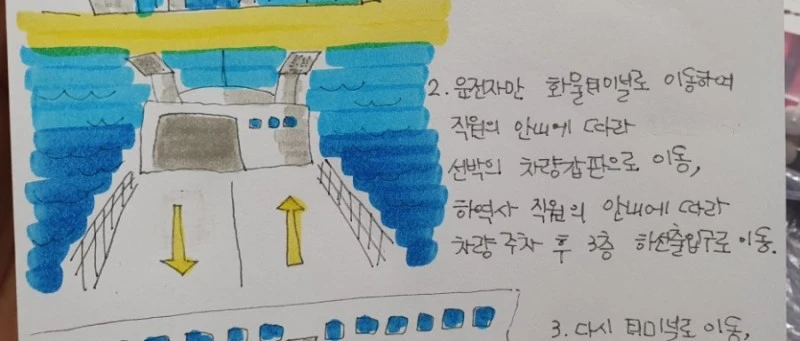 2. 운전자만 화물터미널로 이동하여
직원의 안내에 따라
선박의 차량갑판으로 이동,
하역사 직원의 안내에 따라
차량 주차 후 3층 하선출입구로 이동.
3. 다시 터미널로 이동,